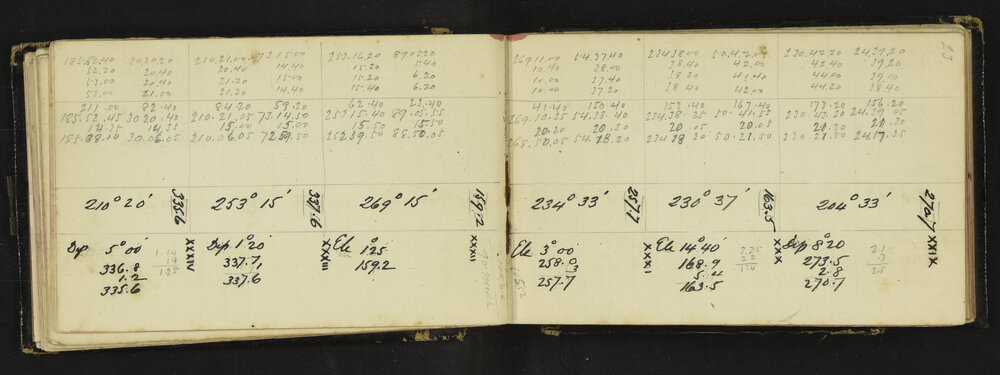 185.52.40 30.20.20
52.20 20.40
53.00 20.40
53.00 21.00
211.00 82.40
185.52.45 30 20.40
14.35 14.35
185.38.10 30.06.05
210° 20′
335.6
Dep 5° 00′
336.8
1.2
335.6
XXXIV
210.21.00 73.15.00
20.40 14.40
21.20 15.00
21.20 14.40
84.20 59.20
210.21.05 73.14.50
15.00 15.00
210.06.05 72.59.50
253° 15′
337.6
Dep 1° 20′
337.7
.1
337.6
XXXIII
253.16.20 89.05.20
15.20 5.40
15.20 6.20
15.40 6.20
62.40 23.40
253 15.40 89.05.55
15.50 15.50
252 59.50 88.50.05
269° 15′
159.2
Ele 1° 25
159.2
XXXII
269 11.00 54.37.40
10.40 38.00
10.00 37.40
10.00 37.20
41.40 150.40
269.10.25 54.38.40
20.20 20.20
54.18.20
234° 33′
257.7
Ele 3° 00′
258.0
257.7
XXXI
234.38.00 50.42.00
38.40 42.00
38 20 41.40
38 40 42.00
153.40 167.40
234.38.25 50.41.55
20.05 20.05
234 18 20 50.21.50
230° 37′
163.5
Ele 14° 40′
168.9
5.4
163.5
XXX
230.42.20 24.39.20
42.40 39.20
44.00 39.00
44.20 38.40
173.20 156.20
230 43.20 24.39.05
21.30 21.30
230 21.50 24.17.35
204° 33′
270.7
Dep 8° 20
273.5
2.8
270.7
XXIX